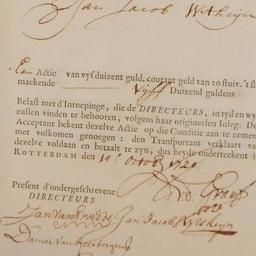 Jan Jacob
Een Actie van vyf duizent guld, courant geld van 20 stuiv. 't st
makende Vijff Duizend guldens
Belast met d'Inroepinge, die de DIRECTEURS, in tyd en wy
zullen vinden te behooren, volgens haar origineelen Inleg. De
Acceptant bekent dezelve Actie op die Conditie aan te nemen
met volkomen genoegen: den Transportant verklaart va
dezelve voldaan en betaalt te zyn, dus beyde onderteekent i
ROTTERDAM den 10 Octob 1720.
Present d'ondergeschrevene
DIRECTEUREN
Jan Jacob